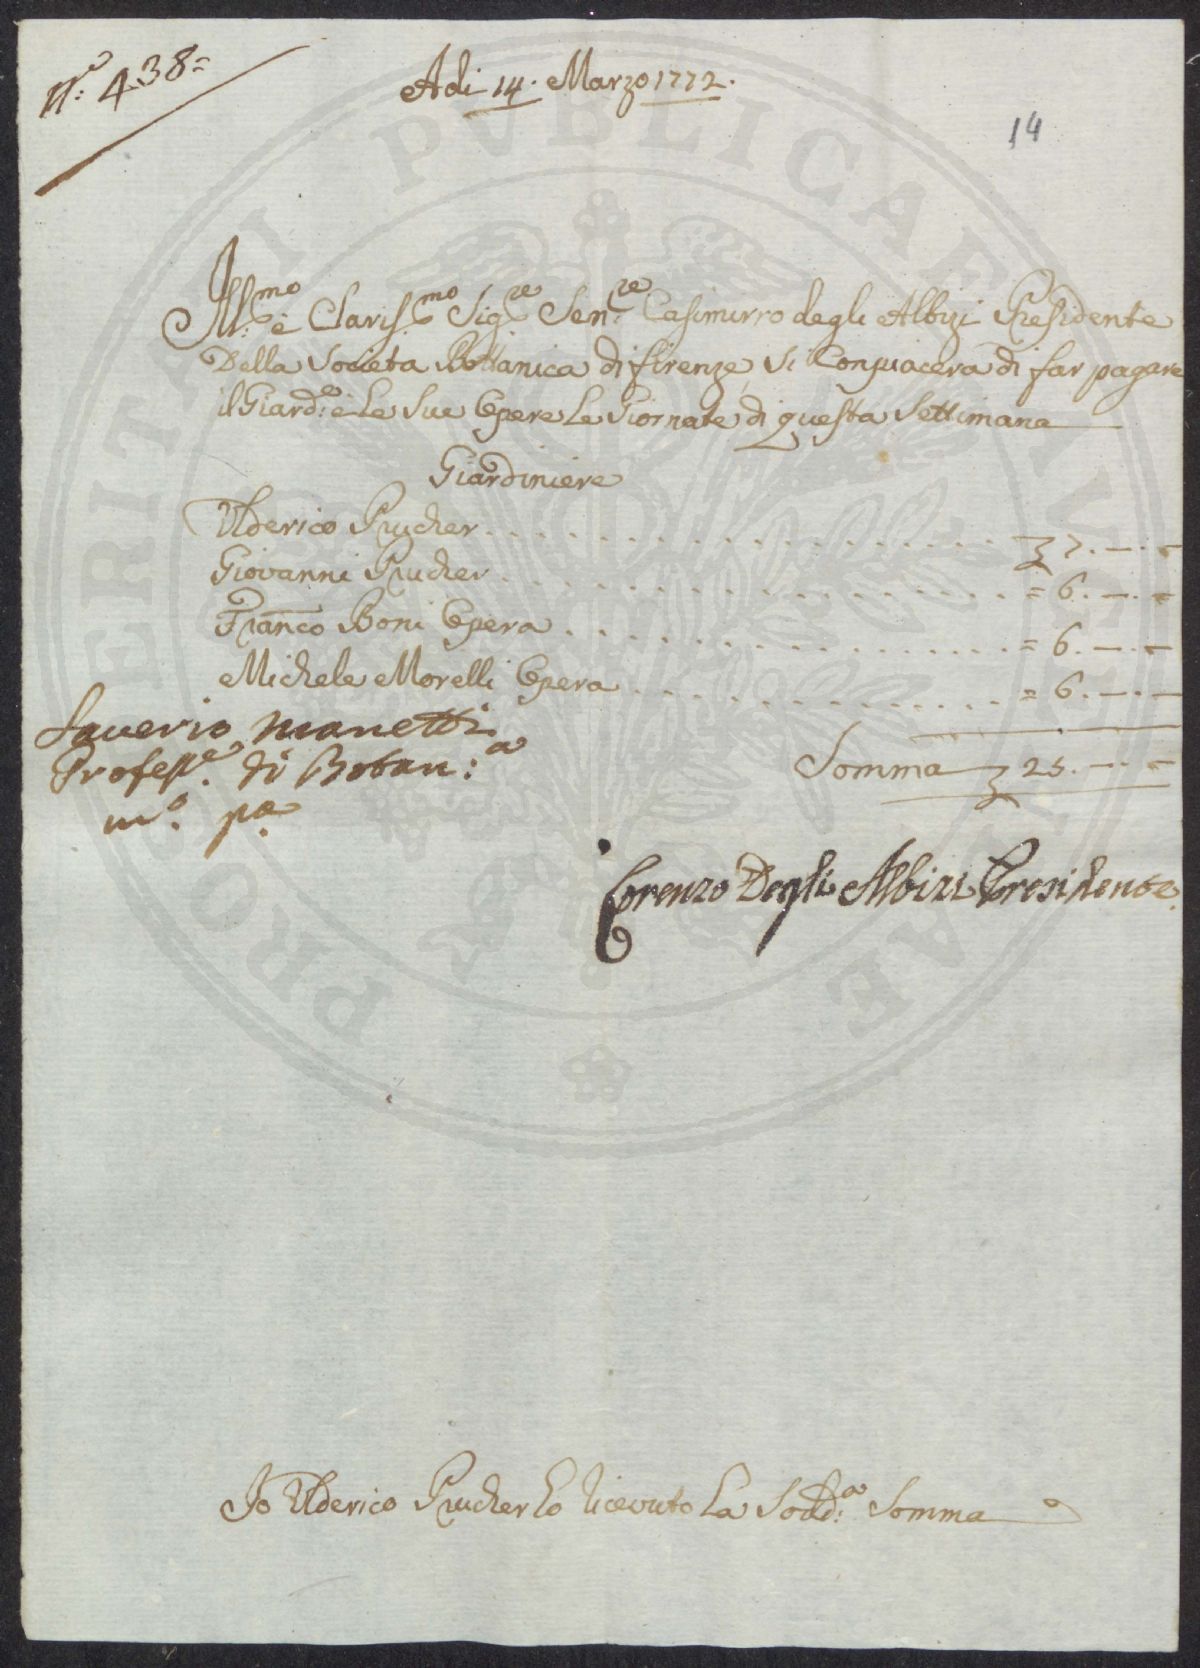 N.º 438=
Adi 14. Marzo 1772.
14
Ill:mo è Claris:mo Sig:re Sen:re Casimirro degli Albizi Presidente
Della Societa Bottanica di firenze, Si Conpiacera di far pagare
il Giard:e è Le Sue Opere Le Giornate di questa Settimana
Giardiniere
Ulderico Prucher . . . . . . . . . . . . . . . . . 7. —. —
Giovanni Prucher . . . . . . . . . . . . . . . . . = 6. —. —
Franco Boni Opera . . . . . . . . . . . . . . . . = 6. —. —
Michele Morelli Opera . . . . . . . . . . . . . . = 6. —. —
Somma 25. —. —
Saverio Manetti
Profess.e di Botan:a
m.o p.a
Lorenzo Degli Albizi Presidente.
Io Ulderico Prucher ho ricevuto La Sodd:a Somma
PROSPERITATI PVBLICAE AVGENDAE